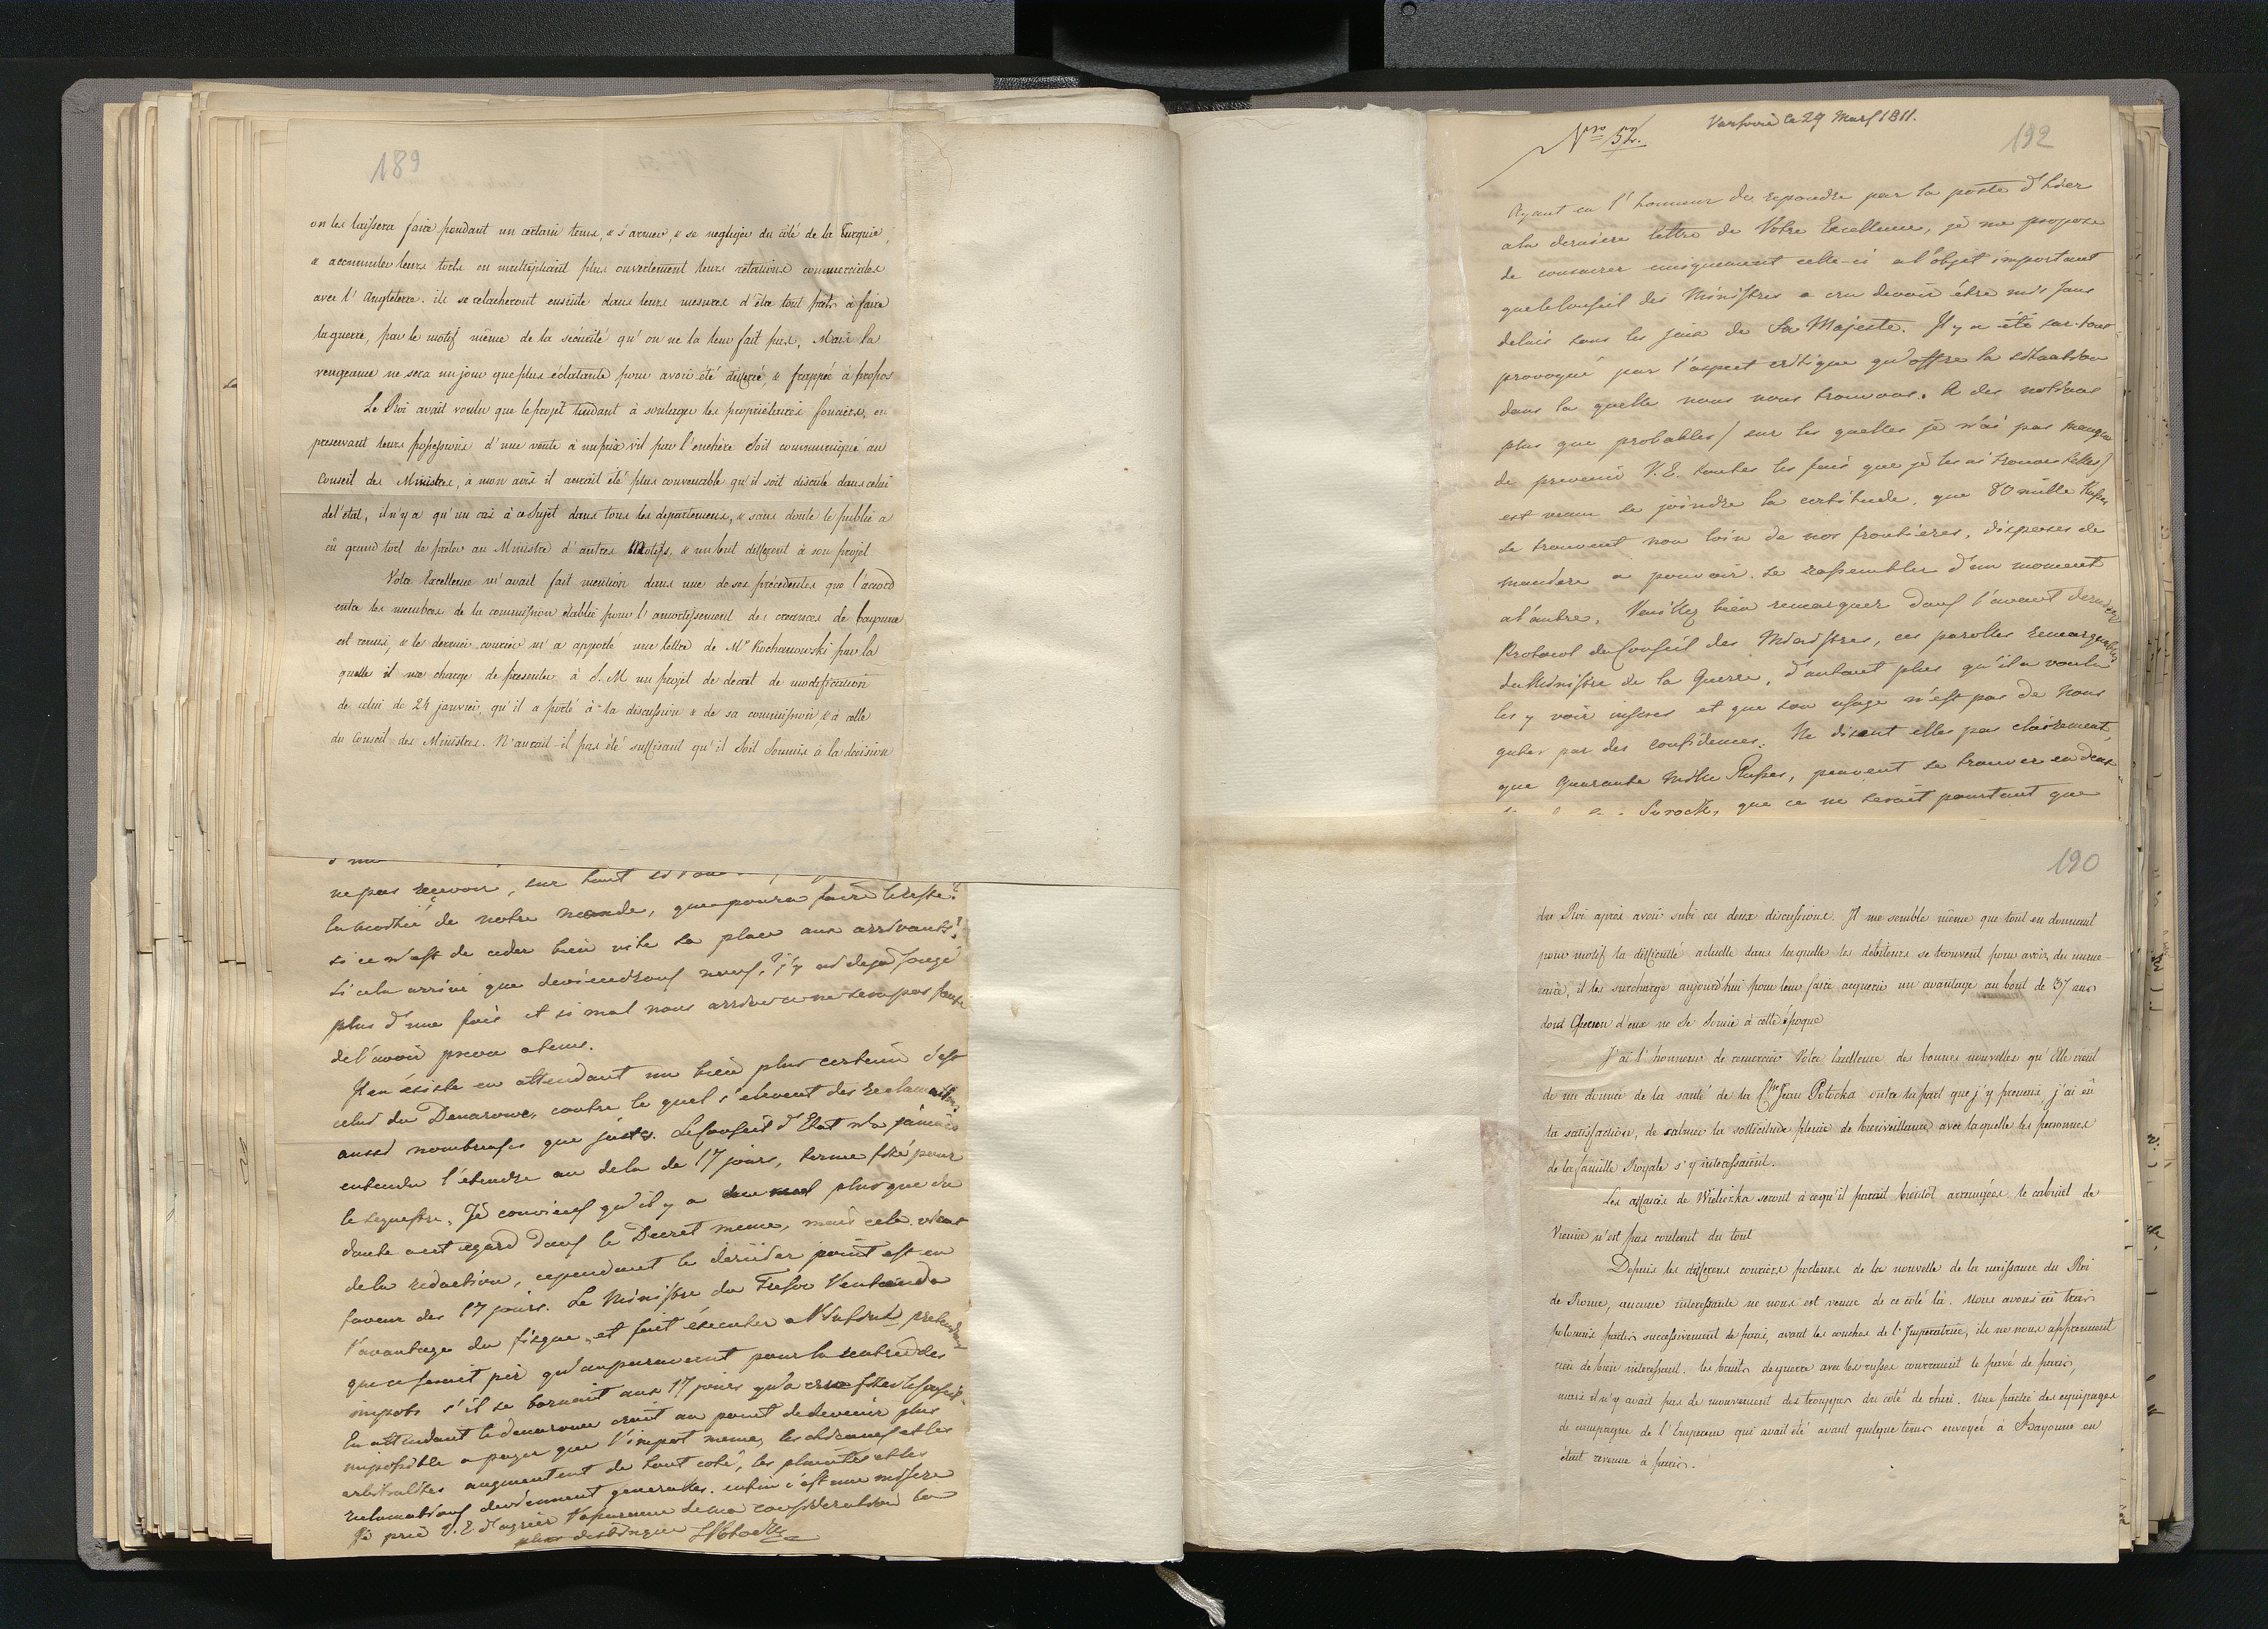 189
on les laissera faire pendant un certain tems, & s'armer, & se negliger du côté de la Turquie,
& accumuler leurs torts en multipliant plus ouvertement leurs relations commerciales
avec l'Angleterre. ils se relacheront ensuite dans leurs mesures d'être tout prêts à faire
la guerre, par le motif même de la sécurité qu'on ne la leur fait pas, Mais la
vengeance ne sera un jour que plus éclatante pour avoir été differée, & frappée à propos
Le Roi avait voulu que le projet tendant à soulager les propriétaires fonciers, en
preservant leurs possessions d'une vente à un prix vil par l'enchère soit communiqué au
Conseil des Ministres, à mon avis il aurait été plus convenable qu'il soit discuté dans celui
de l'état, il n'y a qu'un cri à ce sujet dans tous les departemens, & sans doute le public a
eû grand tort de prêter au Ministre d'autres Motifs, & un but different à son projet.
Votre Excellence m'avait fait mention dans une de ses précédentes que l'accord
entre les membres de la commission établie pour l'amortissement des creances de bayonne
est remis, & le dernier courier m'a apporté une lettre de Mr Kochanowski par la
quelle il me charge de presenter à S. M un projet de decret de modification
de celui de 24 janvier, qu'il a porté à la discussion & de sa commission, & à celle
du Conseil des Ministres. N'aurait-il pas été suffisant qu'il soit soumis à la decision
ne pas reçevoir, sur tout
la moitié de notre monde, que poura faire le reste?
si ce n'est de ceder bien vite sa place aux arrivants?
Si cela arrive que deviendrons nous? j'y ai deja songé
plus d'une fois et si mal nous arrive ce ne sera pas faute
de l'avoir prevu a tems.
Il en existe en attendant un bien plus certain c'est
celui du Denarowe, contre le quel s'elevent des reclamations
aussi nombreuses que justes. Le Conseil d'Etat n'a jamais
entendu l'étendre au dela de 17 jours, terme fixé pour
le sequestre. Je conviens qu'il y a plus que du
doute a cet egard dans le Decret meme, mais cela vient
de la redaction, cependant le dernier point est en
faveur des 17 jours. Le Ministre du Tresor
l'avantage du fisque, et fait éxécuter pretendant
que ce serait pis qu'auparavent pour la rentrée des
impots s'il se bornait aux 17 jours qu'a
En attendant le denarowe croit au point de devenir plus
impossible a payer que l'impot meme, les chicanes et les
arbitralités augmentent de tout coté, les plaintes et les
reclamations deviennent generalles. enfin c'est une misere
Je prie V. E. d'agréer l'assurance de ma consideration la
plus distinguée
Nro 52.
Varsovie ce 29 Mars 1811.
192
Ayant eu l'honneur de repondre par la poste d'hier
a la derniere lettre de Votre Excellence, je me propose
de consacrer uniquement celle-ci a l'objet important
que le Conseil des Ministres a cru devoir être mis sans
delais sous les yeux de Sa Majeste. Il y a été sur-tout
provoqué par l'aspect critique qu'offre la situation
dans la quelle nous nous trouvons. A des notions
plus que probables/ sur les quelles je n'ai pas manqué
de prevenir V. E. toutes les fois que je les ai trouvés telles/
est venu se joindre la certitude, que 80 mille Russes
se trouvent non loin de nos frontieres, disposés de
maniere a pouvoir se rassembler d'un moment
a l'autre. Veuillez bien remarquer dans l'avant dernier
Protocol du Conseil des Ministres, ces parolles remarquables
du Ministre de la Guerre, d'autant plus qu'il a voulu
les y voir inserés et que son usage n'est pas de nous
gater par des confidences. Ne disent elles pas clairement,
que quarante mille Russes, peuvent se trouver en deux
Serock, que ce ne serait pourtant que
190
du Roi après avoir subi ces deux discussions. Il me semble même que tout en donnant
pour motif la difficulté actuelle dans laquelle les débiteurs se trouvent pour avoir du nume-
raire, il les surcharge aujourd'hui pour leur faire acquerir un avantage au bout de 37 ans
dont Aucun d'eux ne se soucie à cette époque
J'ai l'honneur de remercier Votre Excellence des bonnes nouvelles qu'Elle vient
de me donner de la santé de la Ctsse Jean Potocka outre la part que j'y prenois, j'ai eû
la satisfaction, de calmer la sollicitude pleine de bienveillance avec laquelle les personnes
de la famille Royale s'y interessaient.
Les affaires de Wieliczka seront à ce qu'il parait bientôt arrangées. le cabinet de
Vienne n'est pas content du tout
Depuis les differens couriers porteurs de la nouvelle de la naissance du Roi
de Rome, aucune interessante ne nous est venue de ce côté là. Nous avons eû trois
polonais partis successivement de paris, avant les couches de l'Imperatrice, ils ne nous apprennent
rien de bien interessant. les bruits de guerre avec les russes couvraient le pavé de paris,
mais il n'y avait pas de mouvement des trouppes du côté de chez. Une partie des equipages
de campagne de l'Empereur qui avait été avant quelque tems envoyée à Bayonne en
était revenue à paris.